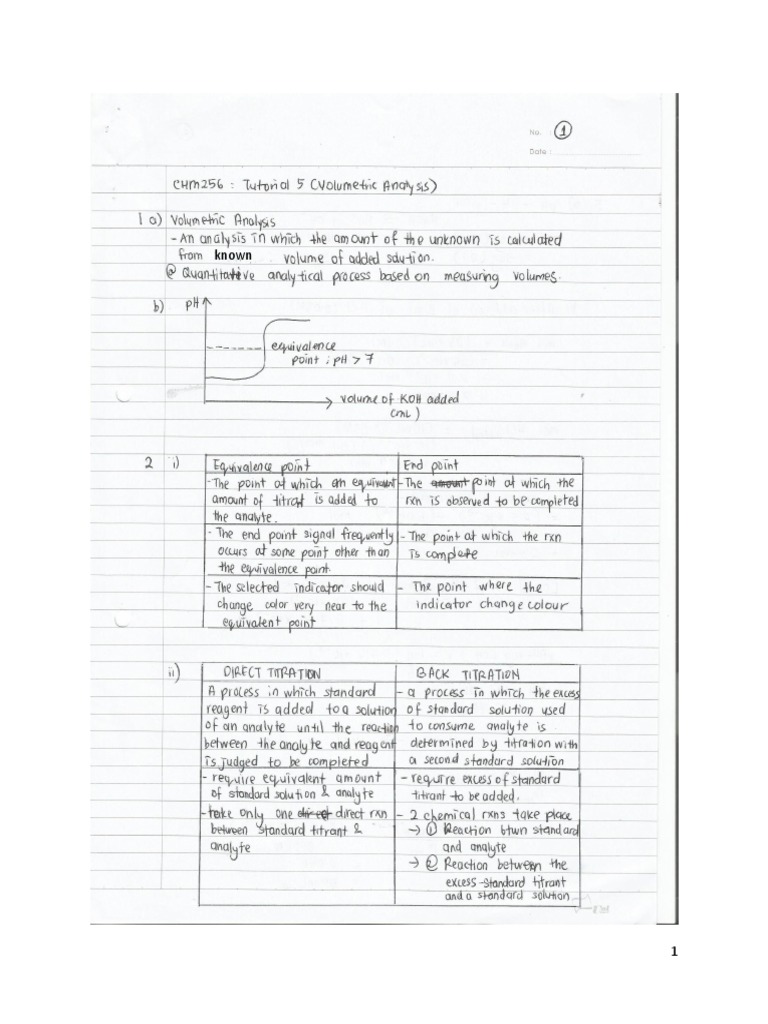 No. : 1
Date :
CHM256 : Tutorial 5 (Volumetric Analysis)
1 a) Volumetric Analysis
- An analysis in which the amount of the unknown is calculated
from known volume of added solution.
@ Quantitative analytical process based on measuring volumes.
b) pH
equivalence
point ; pH > 7
volume of KOH added
(mL)
2 i) Equivalence point | End point
- The point at which an equivalent | - The amount point at which the
amount of titrat is added to | rxn is observed to be completed
the analyte.
- The end point signal frequently | - The point at which the rxn
occurs at some point other than | is complete
the equivalence point.
- The selected indicator should | - The point where the
change color very near to the | indicator change colour
equivalent point
ii) DIRECT TITRATION | BACK TITRATION
A process in which standard | - a process in which the excess
reagent is added to a solution | of standard solution used
of an analyte until the reaction | to consume analyte is
between the analyte and reagent | determined by titration with
is judged to be completed | a second standard solution
- require equivalent amount | - require excess of standard
of standard solution & analyte | titrant to be added.
- take only one direct direct rxn | - 2 chemical rxns take place
between standard titrant & | → ① Reaction btwn standard
analyte | and analyte
→ ② Reaction between the
excess standard titrant
and a standard solution
1